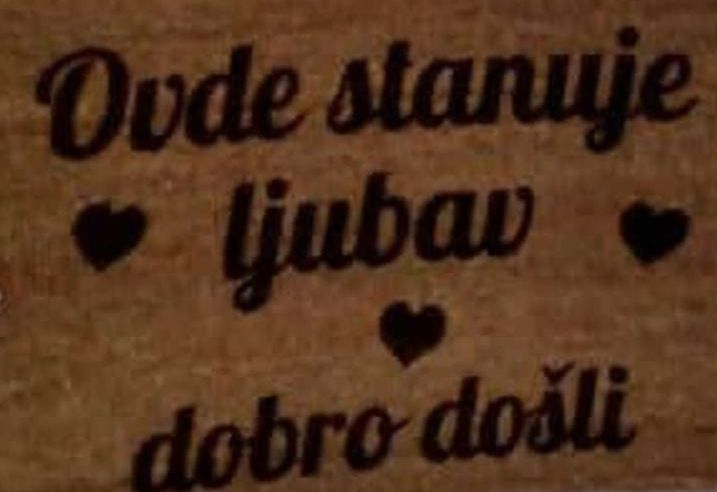 Ovde stanuje
ljubav
dobro došli